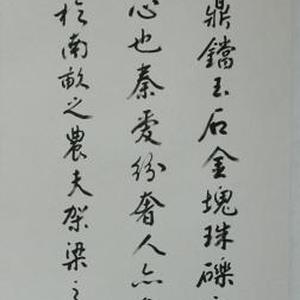 鼎鐺玉石金塊珠礫
心也秦愛紛奢人亦
於南畝之農夫架梁之